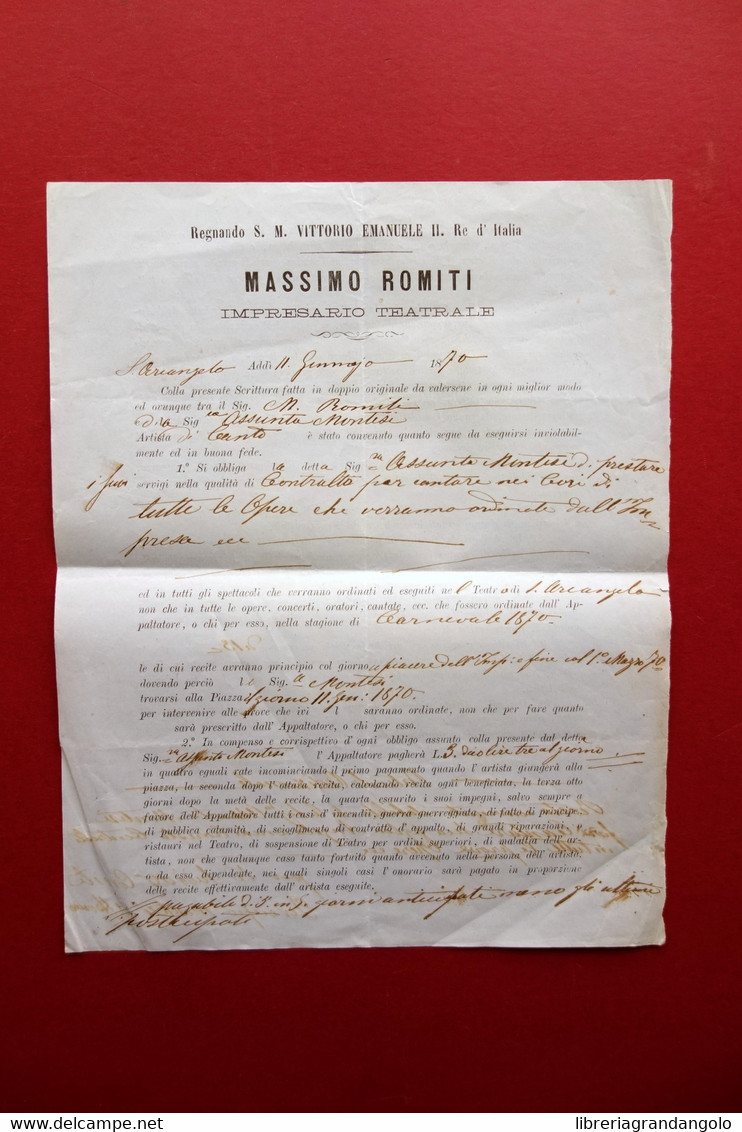 Regnando S. M. VITTORIO EMANUELE II. Re d' Italia
MASSIMO ROMITI
IMPRESARIO TEATRALE
S. Arcangelo Addì 11. Gennajo 1870
Colla presente Scrittura fatta in doppio originale da valersene in ogni miglior modo
ed ovunque tra il Sig. M. Romiti
e la Sig.ra Assunta Montesi
Artista di Canto è stato convenuto quanto segue da eseguirsi inviolabil-
mente ed in buona fede.
1.° Si obbliga la detta Sig.ra Assunta Montesi di prestare
i suoi servigi nella qualità di Contralto per cantare nei Cori di
tutte le Opere che verranno ordinate dall'Im-
presa ecc
ed in tutti gli spettacoli che verranno ordinati ed eseguiti nel Teatro di S. Arcangelo
non che in tutte le opere, concerti, oratori, cantate, ecc. che fossero ordinate dall' Ap-
paltatore, o chi per esso, nella stagione di Carnevale 1870.
le di cui recite avranno principio col giorno a piacere dell'Imp: e fine col 1° Marzo 70
dovendo perciò la Sig.a Montesi
trovarsi alla Piazza il giorno 11. Gen: 1870.
per intervenire alle prove che ivi le saranno ordinate, non che per fare quanto
sarà prescritto dall' Appaltatore, o chi per esso.
2.° In compenso e corrispettivo d' ogni obbligo assunto colla presente dal detta
Sig.ra Assunta Montesi l' Appaltatore pagherà L. 3. dico lire tre al giorno
in quattro eguali rate incominciando il primo pagamento quando l' artista giungerà alla
piazza, la seconda dopo l' ottava recita, calcolando recita ogni beneficiata, la terza otto
giorni dopo la metà delle recite, la quarta esaurito i suoi impegni, salvo sempre a
favore dell' Appaltatore tutti i casi d' incendii, guerra guerreggiata, di fatto di principe
di pubblica calamità, di scioglimento di contratto d' appalto, di grandi riparazioni, e
ristauri nel Teatro, di sospensione di Teatro per ordini superiori, di malattia dell' ar-
tista, non che qualunque caso tanto fortuito quanto avvenuto nella persona dell' artista,
o da esso dipendente, nei quali singoli casi l' onorario sarà pagato in proporzione
delle recite effettivamente dall' artista eseguite.
pagabile di 5. in 5. giorni anticipate meno gli ultimi
posticipati
delcampe.net
libreriagrandangolo